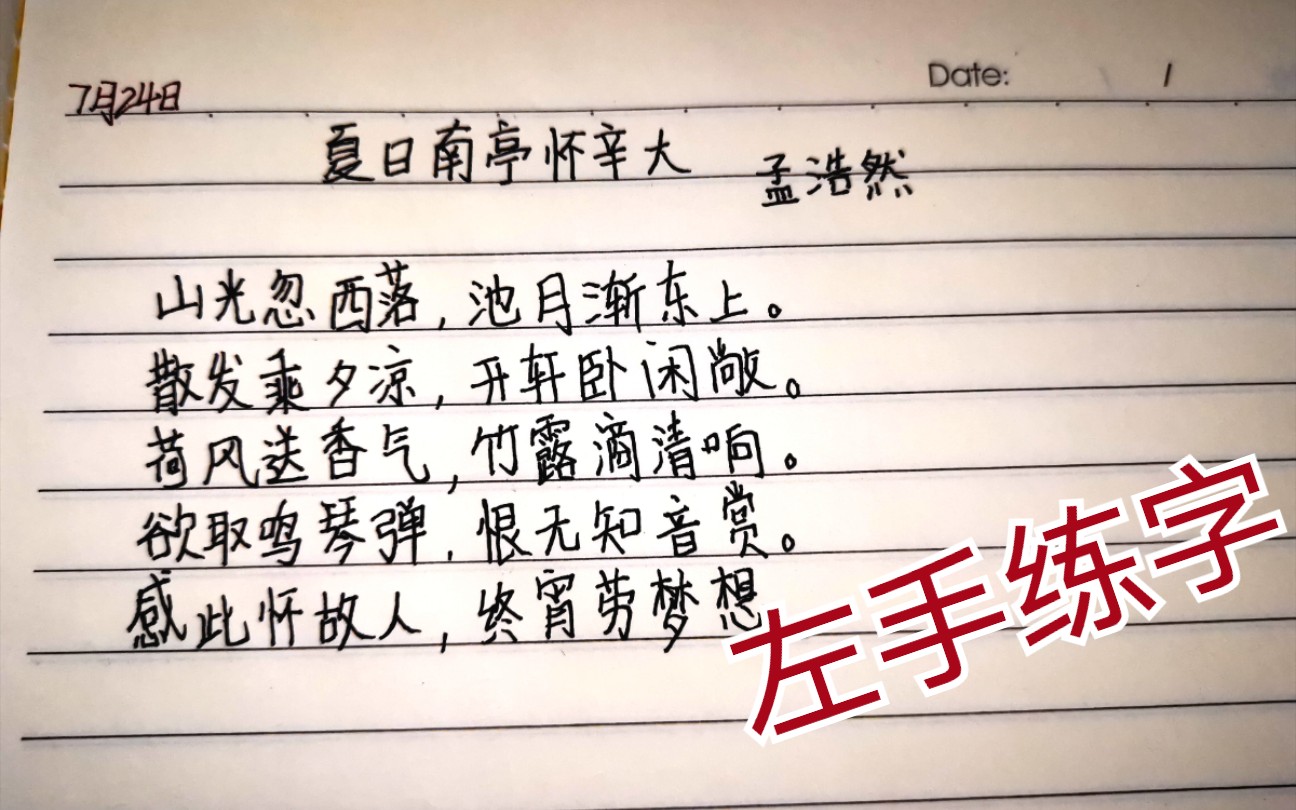 Date: /
7月24日
夏日南亭怀辛大 孟浩然
山光忽西落,池月渐东上。
散发乘夕凉,开轩卧闲敞。
荷风送香气,竹露滴清响。
欲取鸣琴弹,恨无知音赏。
感此怀故人,终宵劳梦想
左手练字